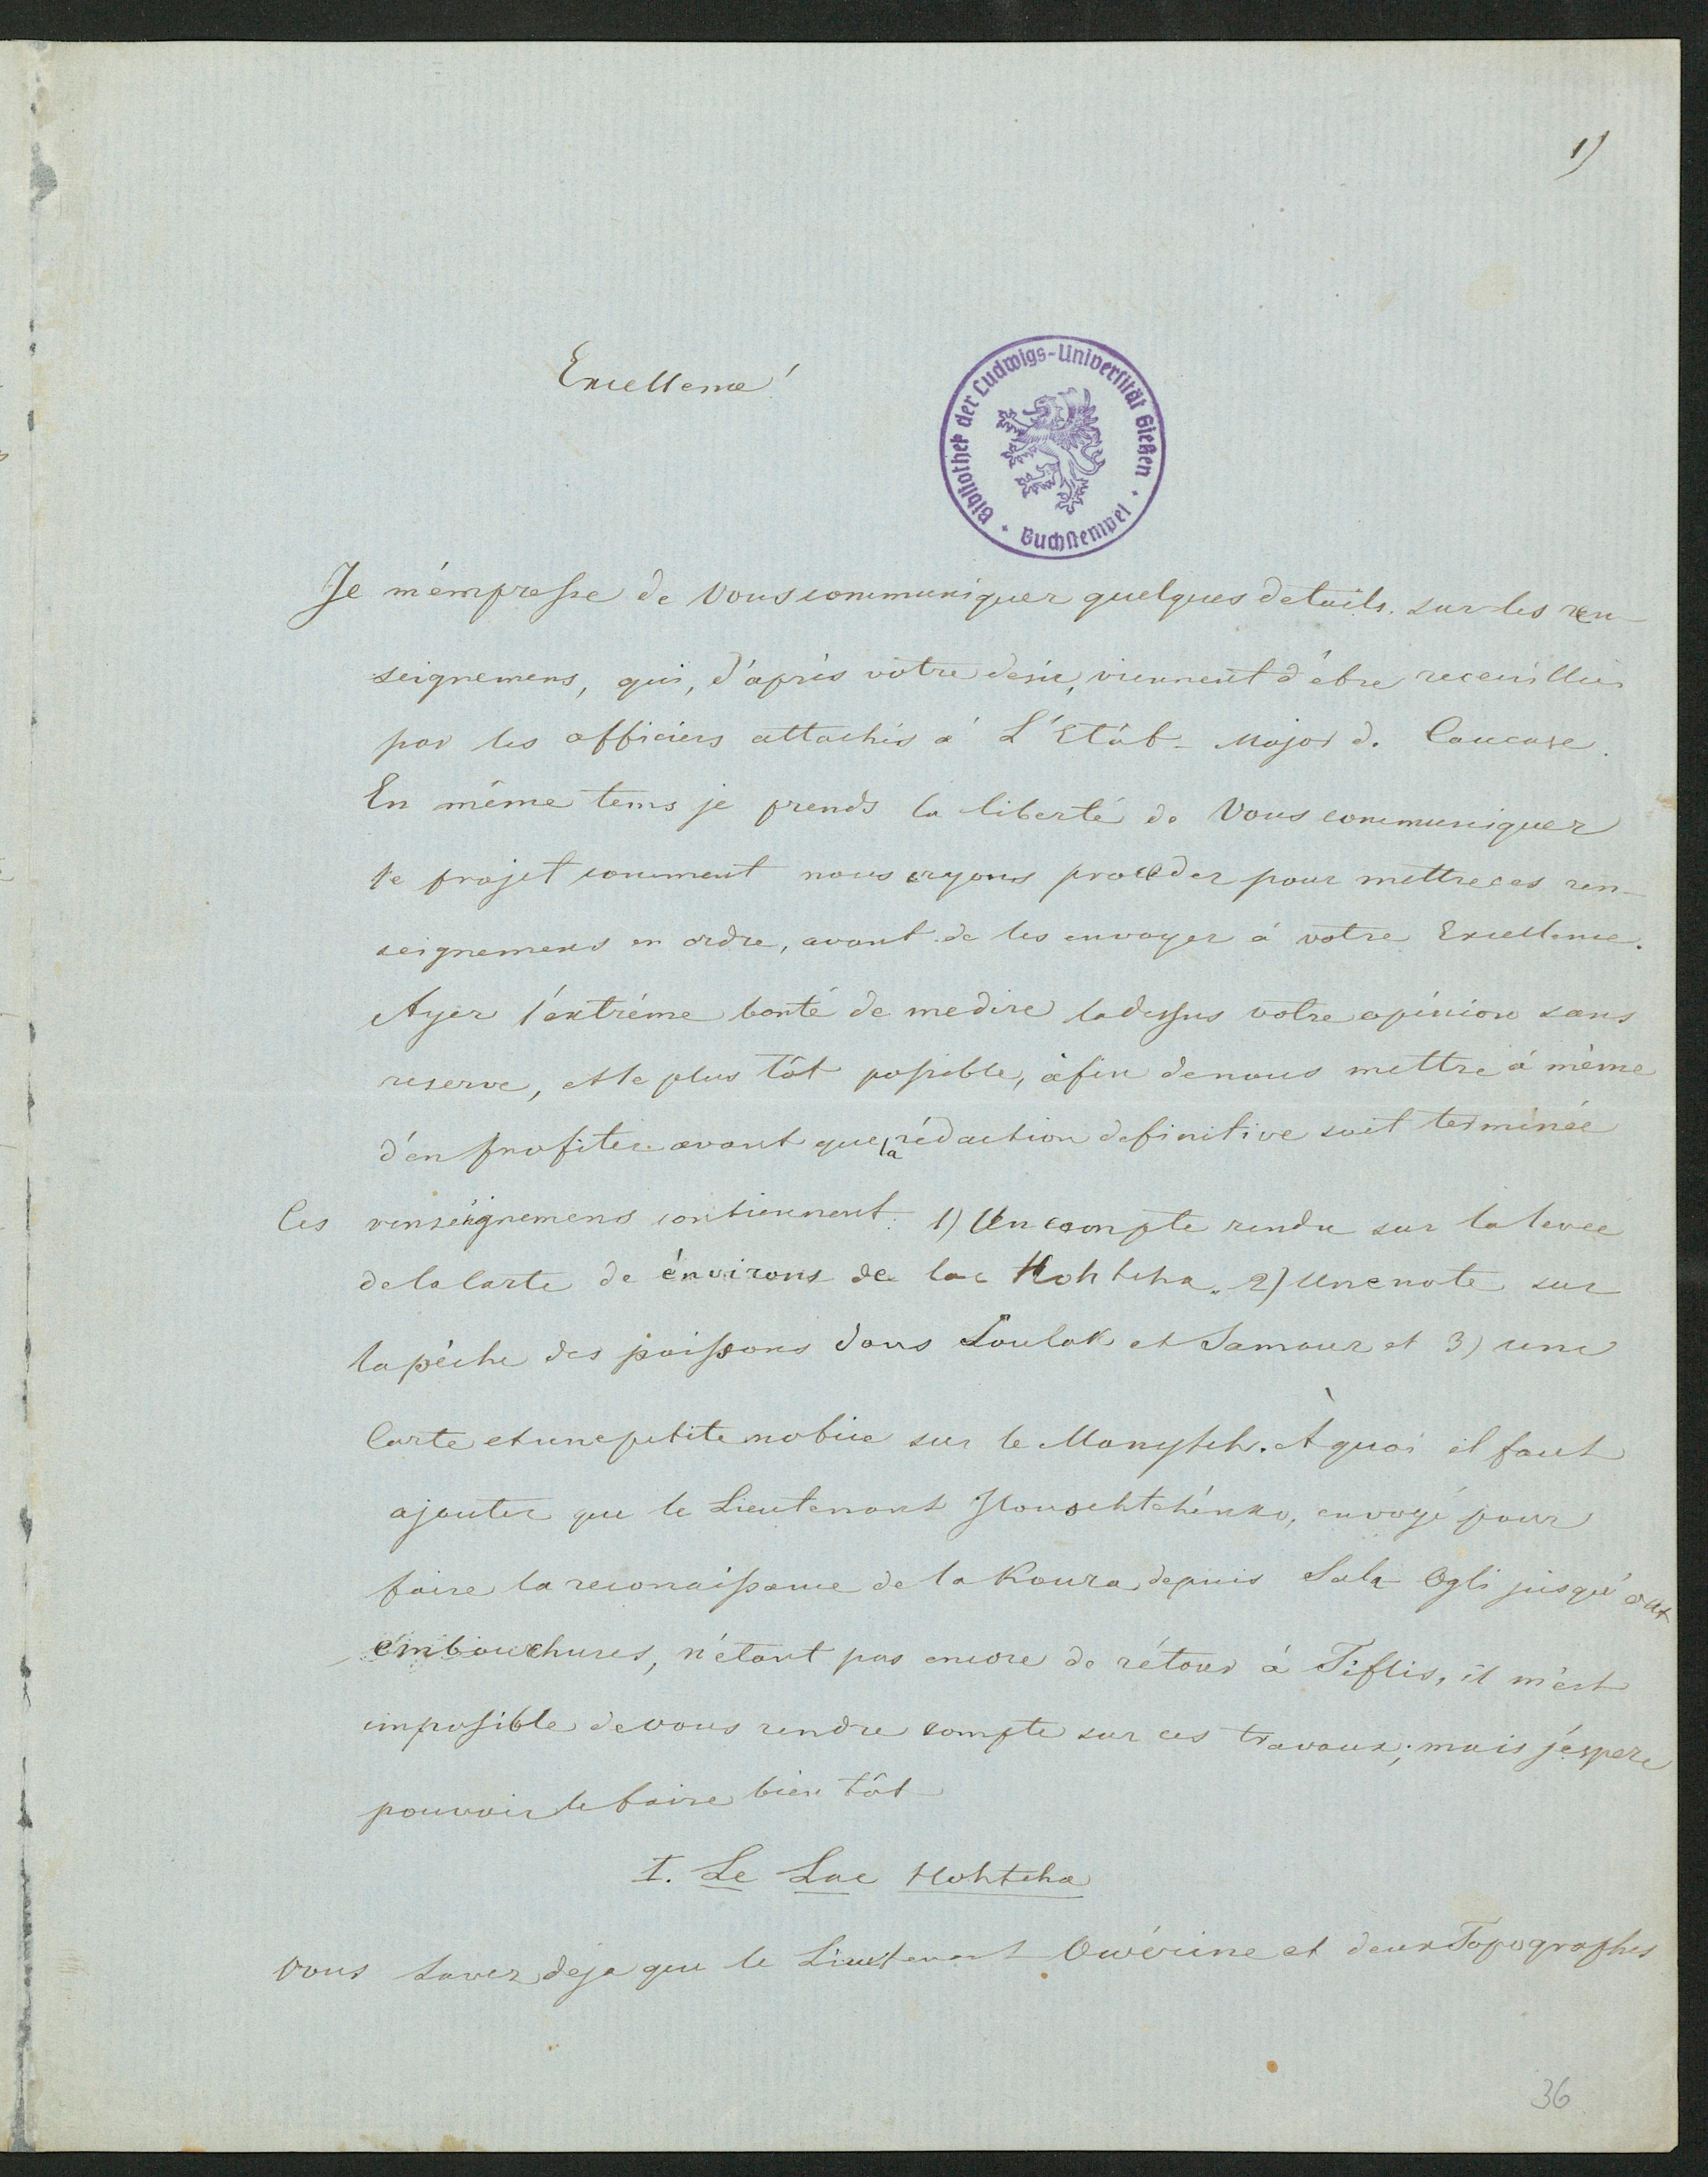 1)
Excellence!
Bibliothek der Ludwigs-Universität Gießen · Buchstempel ·
Je m'émpresse de Vous communiquer quelques details sur les ren-
seignemens, qui, d'après votre desir, viennent d'être receuillis
par les officiers attachés à L'Etât-Major d. Caucase.
En même tems je prends la liberté de Vous communiquer
le projet comment nous cryons proceder pour mettre ces ren-
seignemens en ordre, avant de les envoyer à votre Excellence.
Ayez l'éxtrème bonté de me dire la dessus votre opinion sans
reserve, et le plus tôt possible, àfin de nous mettre à même
d'en profiter avant que la rédaction definitive soit terminée
Ces renséignemens contiennent: 1) Un compte rendu sur la levée
de la Carte de énvirons de lac Hohtcha. 2) Une note sur
la pèche des poissons dans Soulak et Samour et 3) une
Carte et une petite notice sur le Manytch. À quoi il faut
ajouter que le Lieutenant envoyé pour
faire la reconaissance de la Koura, depuis Sala Ogli jusqu'aux
émbouchures, n'étant pas encore de rétour à Tiflis, il m'est
impossible de vous rendre compte sur ces travaux; mais j'éspere
pouvoir le faire bien tôt
I. Le Lac Hohtcha
Vous savez deja que le Lieutenant Owérine et deux Topographes
36